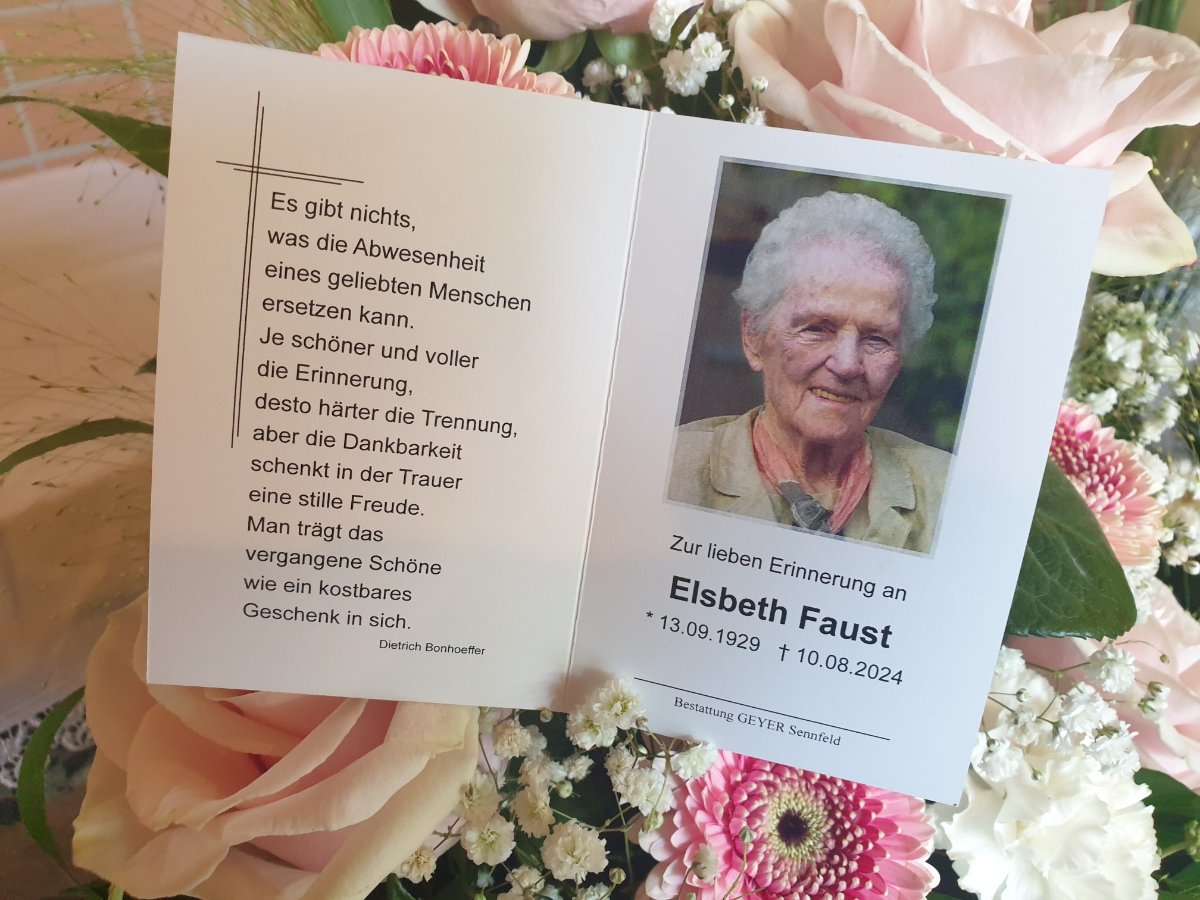 Es gibt nichts,
was die Abwesenheit
eines geliebten Menschen
ersetzen kann.
Je schöner und voller
die Erinnerung,
desto härter die Trennung,
aber die Dankbarkeit
schenkt in der Trauer
eine stille Freude.
Man trägt das
vergangene Schöne
wie ein kostbares
Geschenk in sich.
Dietrich Bonhoeffer
Zur lieben Erinnerung an
Elsbeth Faust
* 13.09.1929 † 10.08.2024
Bestattung GEYER Sennfeld